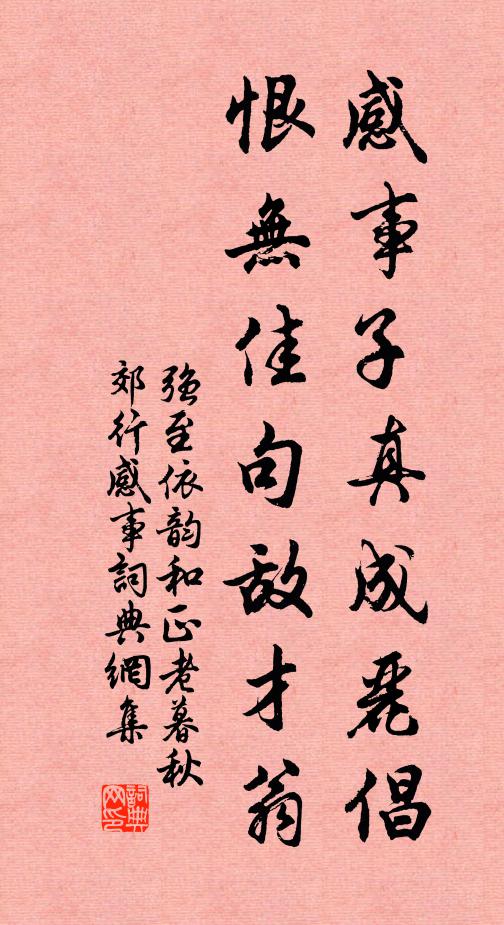 感事子真成麗倡
恨無佳句敌才翁
强至依韵和正老暮秋
郊行感事詞典網集
詞典网印